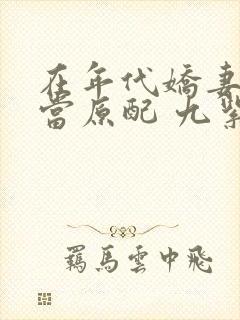 在年代嬌妻
當原配 九紫
羈馬雲中飛